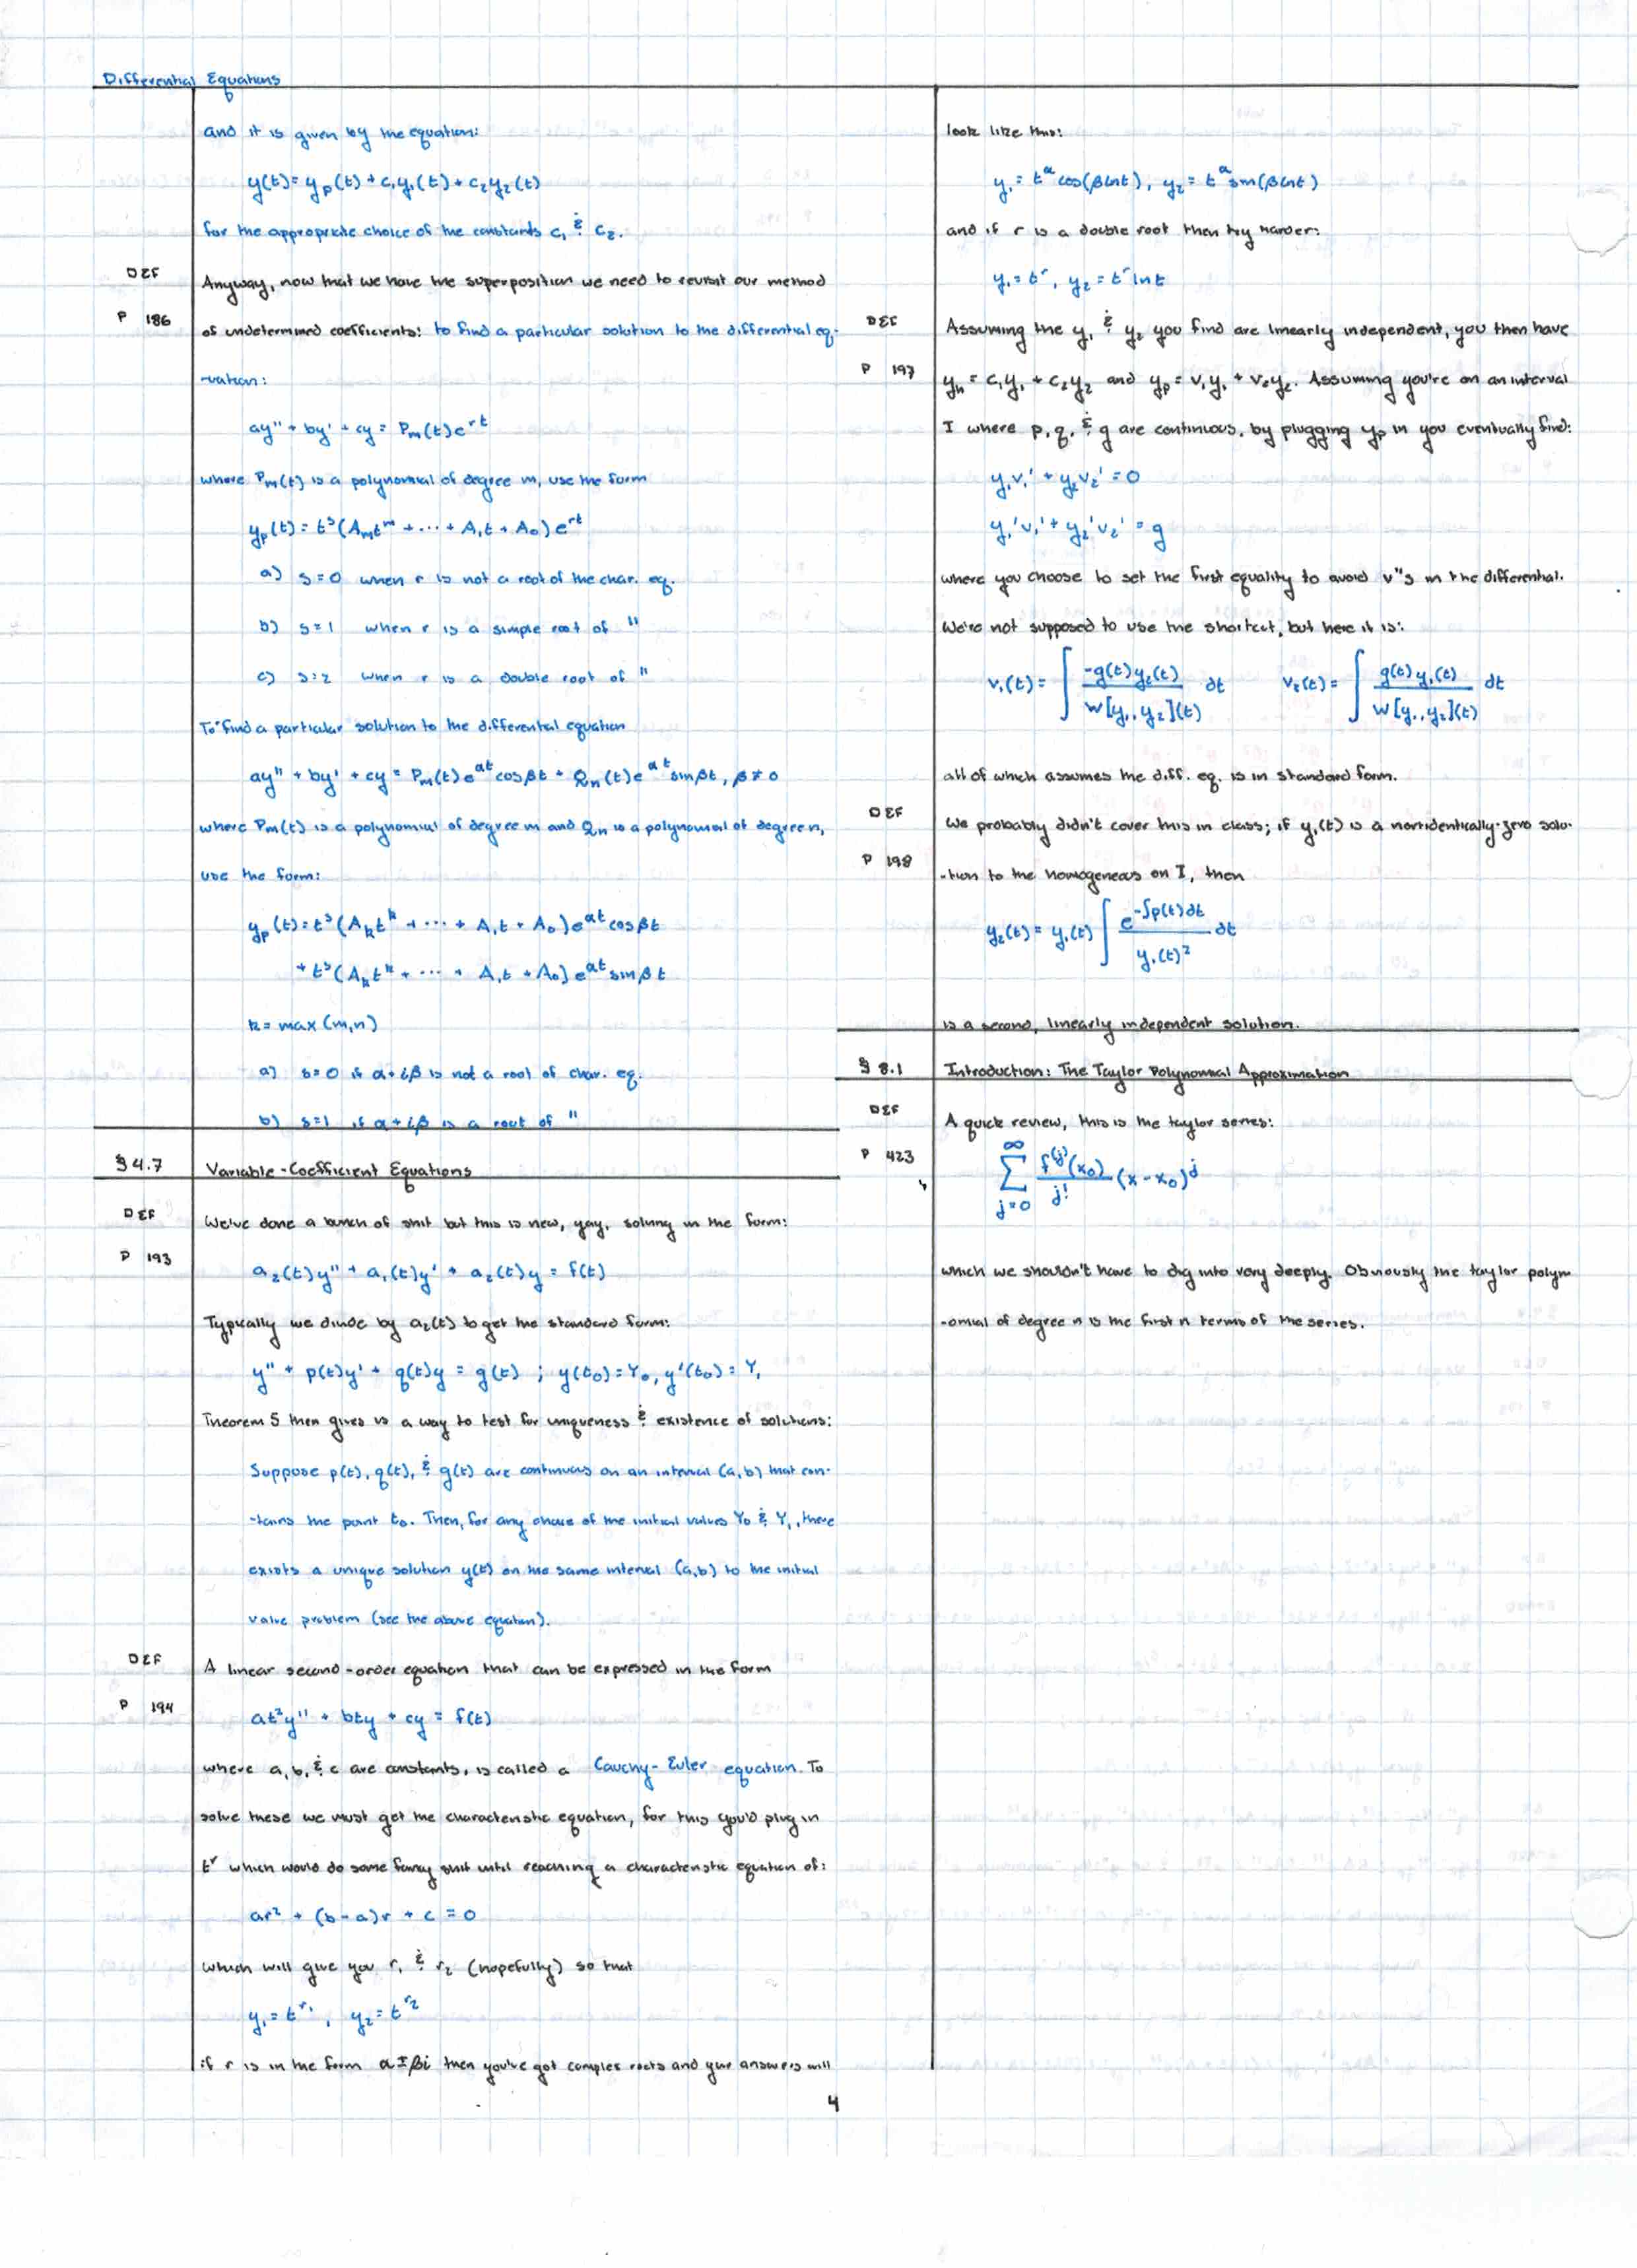 Differential Equations
and it is given by the equation:
y(t) = y_p(t) + c₁y₁(t) + c₂y₂(t)
for the appropriate choice of the constants c₁ & c₂.
DEF
P 186
Anyway, now that we have the superposition we need to revisit our method
of undetermined coefficients: to find a particular solution to the differential eq-
-uation:
ay'' + by' + cy = P_m(t)e^{rt}
where P_m(t) is a polynomial of degree m, use the form
y_p(t) = t^s(A_m t^m + ... + A₁t + A₀)e^{rt}
a) s=0 when r is not a root of the char. eq.
b) s=1 when r is a simple root of "
c) s=2 when r is a double root of "
To find a particular solution to the differential equation
ay'' + by' + cy = P_m(t)e^{αt}cosβt + Q_n(t)e^{αt}sinβt, β≠0
where P_m(t) is a polynomial of degree m and Q_n is a polynomial of degree n,
use the form:
y_p(t) = t^s(A_k t^k + ... + A₁t + A₀)e^{αt}cosβt
+ t^s(A_k t^k + ... + A₁t + A₀)e^{αt}sinβt
k = max(m,n)
a) s=0 if α+iβ is not a root of char. eq.
b) s=1 if α+iβ is a root of "
§4.7 Variable-Coefficient Equations
DEF
P 193
We've done a bunch of shit but this is new, yay, solving in the form:
a₂(t)y'' + a₁(t)y' + a₂(t)y = f(t)
Typically we divide by a₂(t) to get the standard form:
y'' + p(t)y' + q(t)y = g(t) ; y(t₀)=Y₀, y'(t₀)=Y₁
Theorem 5 then gives us a way to test for uniqueness & existence of solutions:
Suppose p(t), q(t), & g(t) are continuous on an interval (a,b) that con-
-tains the point t₀. Then, for any choice of the initial values Y₀ & Y₁, there
exists a unique solution y(t) on the same interval (a,b) to the initial
value problem (see the above equation).
DEF
P 194
A linear second-order equation that can be expressed in the form
at²y'' + bty + cy = f(t)
where a, b, & c are constants, is called a Cauchy-Euler equation. To
solve these we must get the characteristic equation, for this you'd plug in
t^r which would do some fancy shit until reaching a characteristic equation of:
ar² + (b-a)r + c = 0
which will give you r₁ & r₂ (hopefully) so that
y₁ = t^{r₁}, y₂ = t^{r₂}
if r is in the form α±βi then you've got complex roots and your answers will
look like this:
y₁ = t^α cos(βlnt), y₂ = t^α sin(βlnt)
and if r is a double root then try harder:
y₁ = t^r, y₂ = t^r ln t
DEF
P 197
Assuming the y₁ & y₂ you find are linearly independent, you then have
y_h = c₁y₁ + c₂y₂ and y_p = v₁y₁ + v₂y₂. Assuming you're on an interval
I where p, q, & g are continuous, by plugging y_p in you eventually find:
y₁v₁' + y₂v₂' = 0
y₁'v₁' + y₂'v₂' = g
where you choose to set the first equality to avoid v''s in the differential.
We're not supposed to use the shortcut, but here it is:
v₁(t) = ∫ -g(t)y₂(t) / W[y₁,y₂](t) dt v₂(t) = ∫ g(t)y₁(t) / W[y₁,y₂](t) dt
all of which assumes the diff. eq. is in standard form.
DEF
P 198
We probably didn't cover this in class; if y₁(t) is a nonidentically-zero solu-
-tion to the homogeneous on I, then
y₂(t) = y₁(t) ∫ e^{-∫p(t)dt} / y₁(t)² dt
is a second, linearly independent solution.
§ 8.1 Introduction: The Taylor Polynomial Approximation
DEF
P 423
A quick review, this is the taylor series:
∑_{j=0}^{∞} f^{(j)}(x₀) / j! (x-x₀)^j
which we shouldn't have to dig into very deeply. Obviously the taylor polyn
-omial of degree n is the first n terms of the series.
4